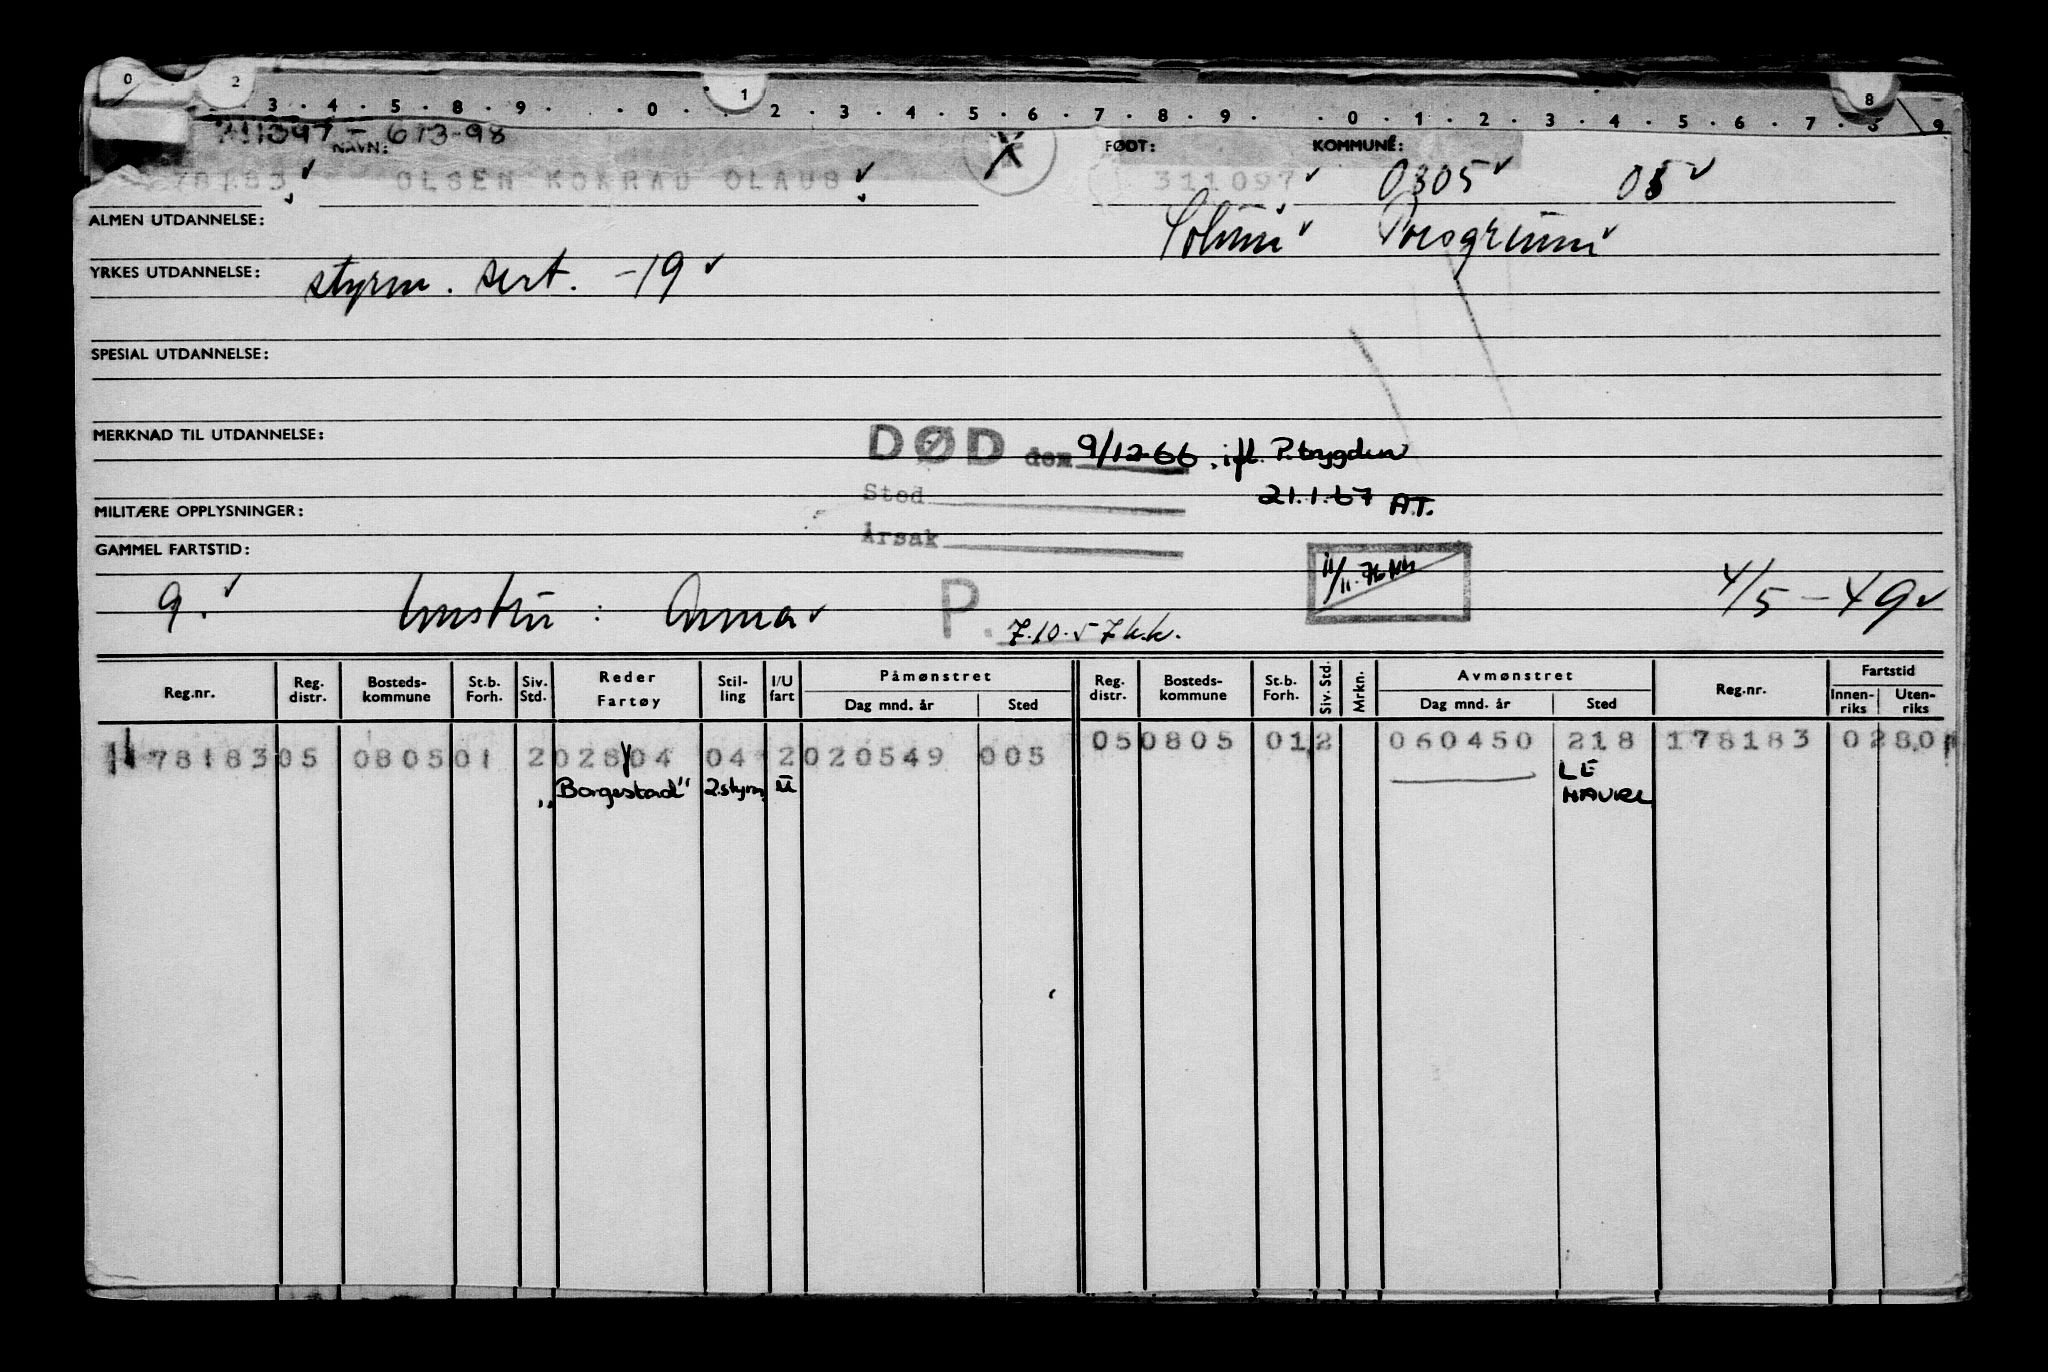 0 2 1 8
. 3 . 4 . 5 . 8 . 9 . . 0 . . 2 . 3 . 4 . 5 . 6 . 7 . 8 . 9 . . 0 . 1 . 2 . 3 . 4 . 5 . 6 . 7 . 8 9
311397 - 613-98
NAVN: X FØDT: KOMMUNE:
78183 OLSEN KONRAD OLAUS 311097 0805 05
ALMEN UTDANNELSE: Solum Porsgrunn
YRKES UTDANNELSE: styrm. sert. -19
SPESIAL UTDANNELSE:
MERKNAD TIL UTDANNELSE:
DØD den 9/12-66, ifl. P.trygden
Sted 21.1.67 A.T.
MILITÆRE OPPLYSNINGER:
Årsak
GAMMEL FARTSTID:
9. hustru : Anna P. 7.10.57 k.k. 11/11-76 4/5-49
Reg.nr. Reg. distr. Bosteds-kommune St.b. Forh. Siv. Std. Reder Fartøy Stil-ling I/U fart Påmønstret Dag mnd. år Sted Reg. distr. Bosteds-kommune St.b. Forh. Siv. Std. Mrkn. Avmønstret Dag mnd. år Sted Reg.nr. Fartstid Innen-riks Uten-riks
178183 05 0805 01 2 028 04 04 2 020549 005 05 0805 01 2 060450 218 178183 02801
"Borgestad" 2.styrm. U LE HAVRE